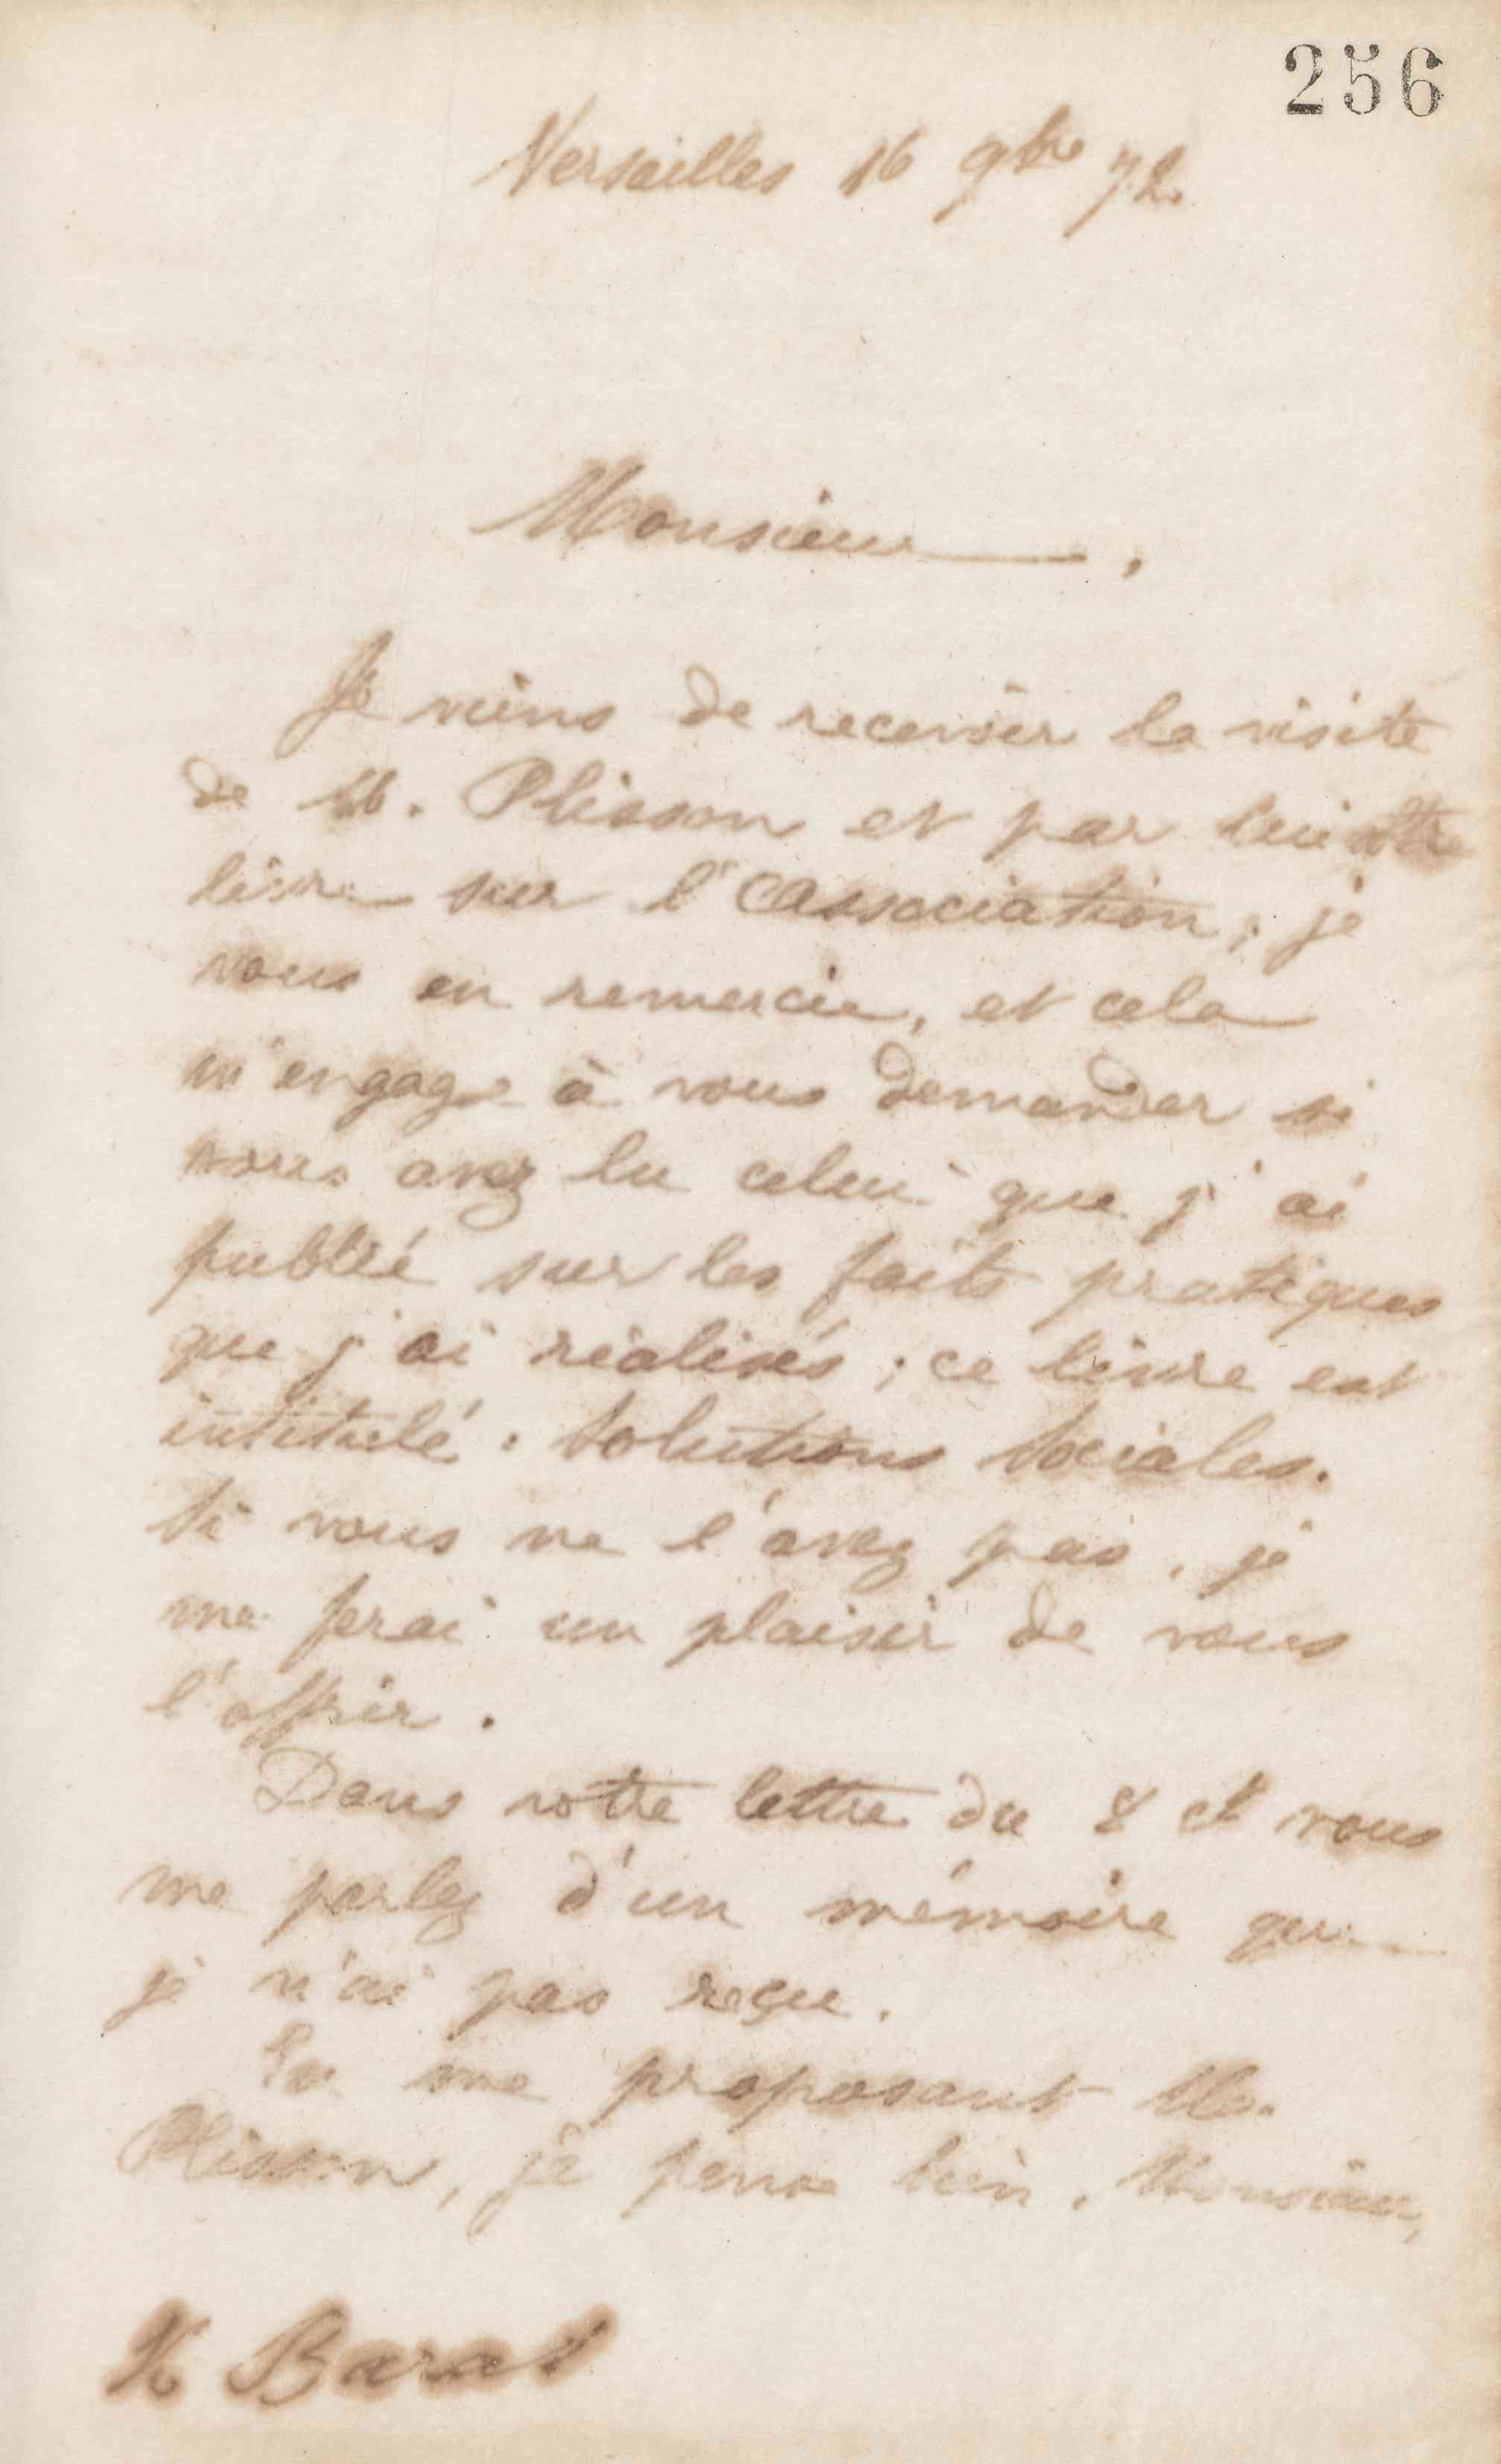 256
Versailles 16 9bre 72.
Monsieur,
Je viens de recevoir la visite
de M. Plisson et par lui votre
livre sur l'association; je
vous en remercie, et cela
m'engage à vous demander si
vous avez lu celui que j'ai
publié sur les faits pratiques
que j'ai réalisés; ce livre est
intitulé: Solutions Sociales.
Si vous ne l'avez pas, je
me ferai un plaisir de vous
l'offrir.
Dans votre lettre du 8 ct vous
me parlez d'un mémoire que
je n'ai pas reçu.
En me proposant M.
Plisson, je pense bien, Monsieur,
Barat